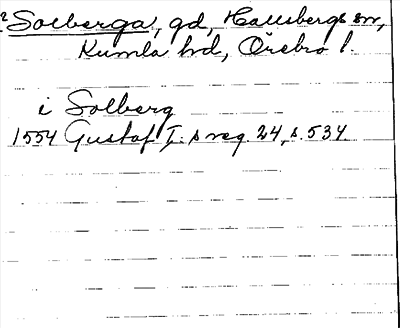 ? Solberga, gd, Hallsbergs sn,
Kumla hd, Örebro l.
i Solberg
1554 Gustaf I:s reg. 24, s. 534